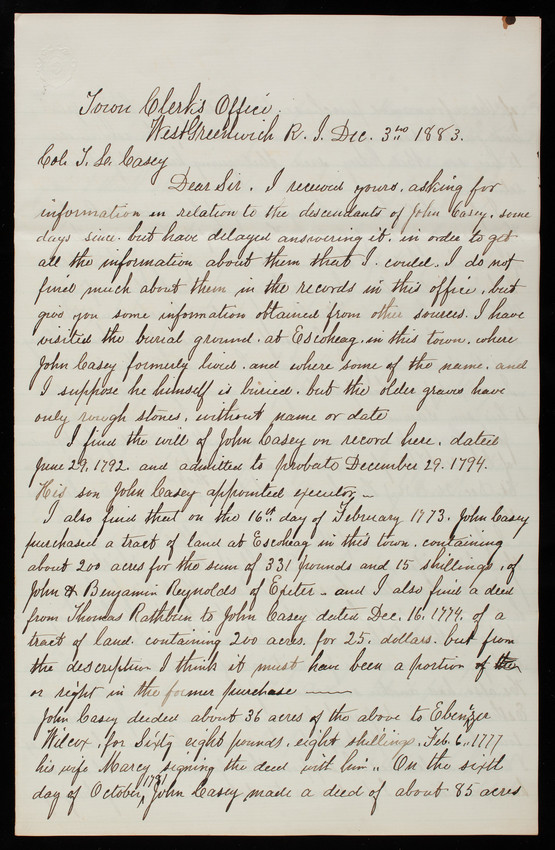 Town Clerk's Office.
West Greenwich R. I. Dec. 3rd 1883.
Col. T. L. Casey
Dear Sir. I received yours, asking for
information in relation to the descendants of John Casey, some
days since. but have delayed answering it, in order to get
all the information about them that I could. I do not
find much about them in the records in this office, but
give you some information obtained from other sources. I have
visited the burial ground. at Escoheag. in this town. where
John Casey formerly lived. and where some of the name. and
I suppose he himself is buried. but the older graves have
only rough stones, without name or date
I find the will of John Casey on record here. dated
June 29, 1792. and admitted to probate December 29. 1794.
His son John Casey appointed executor,
I also find that on the 16th day of February 1773. John Casey
purchased a tract of land at Escoheag in this town. containing
about 200 acres for the sum of 331 pounds and 15 shillings, of
John & Benjamin Reynolds of Exeter - and I also find a deed
from Thomas Rathbun to John Casey dated Dec. 16, 1774. of a
tract of land. containing 200 acres. for 25. dollars. but from
the description I think it must have been a portion of the
or right in the former purchase
John Casey deeded about 36 acres of the above to Ebenezer
Wilcox, for Sixty eight pounds, eight shellings, Feb. 6., 1777
his wife Marcy signing the deed with him.. On the sixth
day of October, John Casey, made a deed of about 85 acres